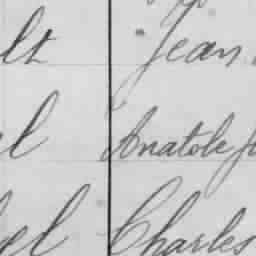 lt Jean
l Anatole
el Charles